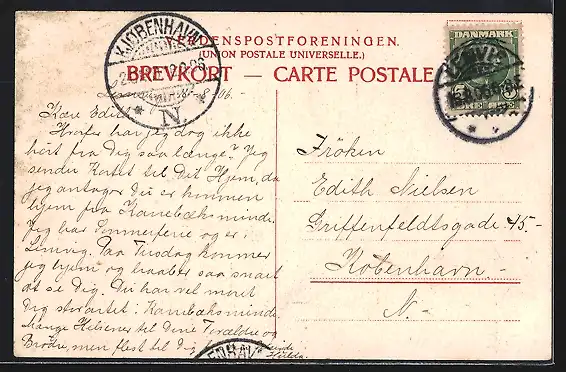 VERDENSPOSTFORENINGEN.
(UNION POSTALE UNIVERSELLE.)
BREVKORT — CARTE POSTALE
KJØBENHAVN
N.
DANMARK
5 ØRE 5
LEMVIG
8-06.-
Kære Edith
Hvorfor har jeg dog ikke
hørt fra Dig saa længe? Jeg
sender Kortet til Dit Hjem, da
jeg antager Du er kommen
hjem fra Karrebæksminde.
Jeg har Sommerferie og er i
Lemvig. Paa Tirsdag kommer
jeg hjem og haaber saa snart
at se Dig. Du har vel moret
Dig storartet i Karrebæksminde
Mange Hilsener til Dine Forældre og
Brødre, men flest til Dig fra
Hulda.
Frøken
Edith Nielsen
Griffenfeldtsgade 45.-
København.
N.-